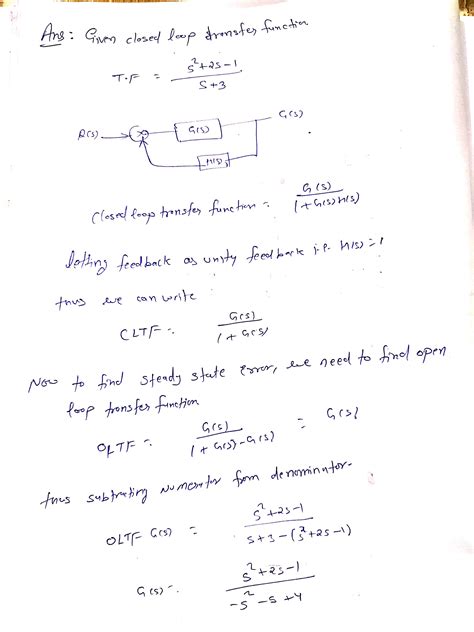 Ans: Given closed loop transfer function
T.F = (s²+2s-1)/(s+3)
R(s) G(s) C(s)
H(s)
Closed loop transfer function = G(s)/(1+G(s)H(s))
letting feedback as unity feedback i.e. H(s)=1
thus we can write
CLTF = G(s)/(1+G(s))
Now to find steady state error, we need to find open
loop transfer function
OLTF = G(s)/(1+G(s)-G(s)) = G(s)
thus subtracting numerator from denominator.
OLTF G(s) = (s²+2s-1)/(s+3-(s²+2s-1))
G(s) = (s²+2s-1)/(-s²-s+4)